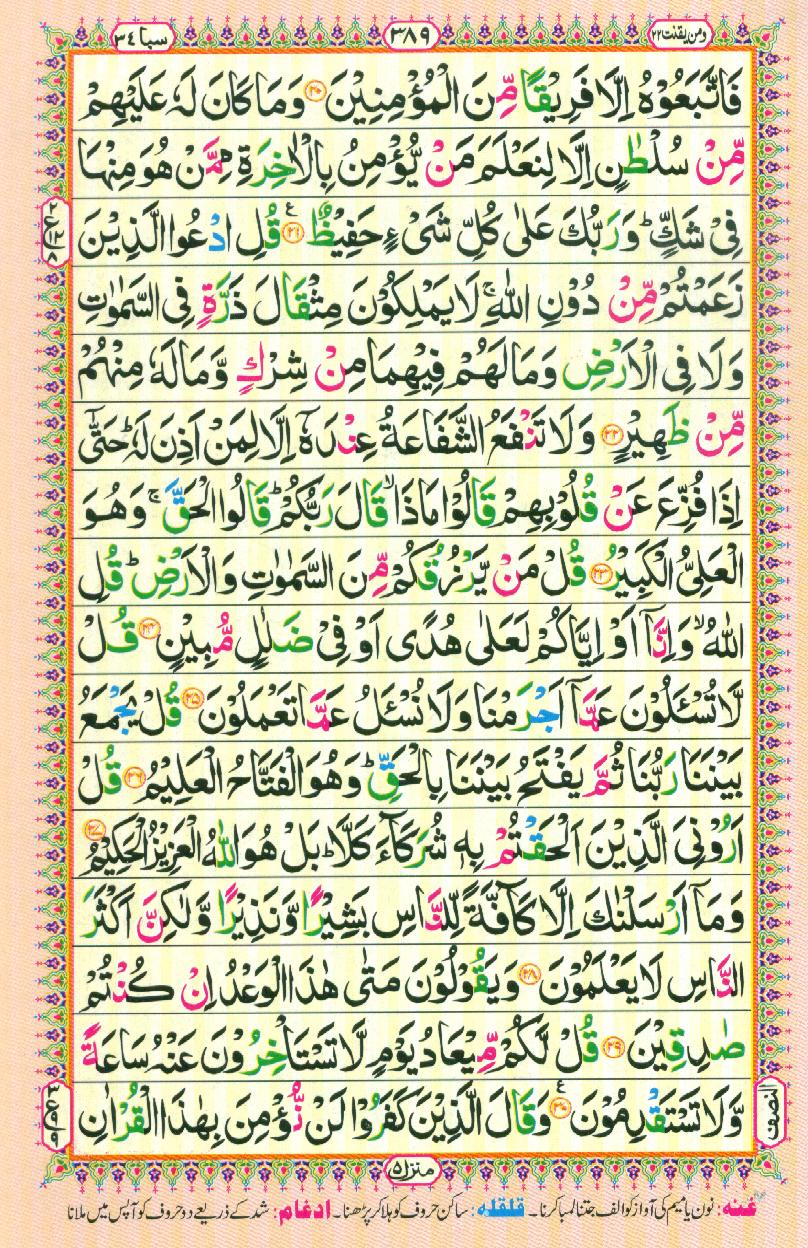 ومن يقنت ٢٢
٣٨٩
سبا ٣٤
فَاتَّبَعُوْهُ اِلَّا فَرِيْقًا مِّنَ الْمُؤْمِنِيْنَ ﴿٢٠﴾ وَمَا كَانَ لَهٗ عَلَيْهِمْ
مِّنْ سُلْطٰنٍ اِلَّا لِنَعْلَمَ مَنْ يُّؤْمِنُ بِالْاٰخِرَةِ مِمَّنْ هُوَ مِنْهَا
فِيْ شَكٍّ ؕ وَرَبُّكَ عَلٰى كُلِّ شَيْءٍ حَفِيْظٌ ﴿٢١﴾ قُلِ ادْعُوا الَّذِيْنَ
زَعَمْتُمْ مِّنْ دُوْنِ اللّٰهِ ۚ لَا يَمْلِكُوْنَ مِثْقَالَ ذَرَّةٍ فِي السَّمٰوٰتِ
وَلَا فِي الْاَرْضِ وَمَا لَهُمْ فِيْهِمَا مِنْ شِرْكٍ وَّمَا لَهٗ مِنْهُمْ
مِّنْ ظَهِيْرٍ ﴿٢٢﴾ وَلَا تَنْفَعُ الشَّفَاعَةُ عِنْدَهٗٓ اِلَّا لِمَنْ اَذِنَ لَهٗ ؕ حَتّٰٓى
اِذَا فُزِّعَ عَنْ قُلُوْبِهِمْ قَالُوْا مَاذَا ۙ قَالَ رَبُّكُمْ ؕ قَالُوا الْحَقَّ ۚ وَهُوَ
الْعَلِيُّ الْكَبِيْرُ ﴿٢٣﴾ قُلْ مَنْ يَّرْزُقُكُمْ مِّنَ السَّمٰوٰتِ وَالْاَرْضِ ؕ قُلِ
اللّٰهُ ۙ وَاِنَّآ اَوْ اِيَّاكُمْ لَعَلٰى هُدًى اَوْ فِيْ ضَلٰلٍ مُّبِيْنٍ ﴿٢٤﴾ قُلْ
لَّا تُسْـَٔلُوْنَ عَمَّآ اَجْرَمْنَا وَلَا نُسْـَٔلُ عَمَّا تَعْمَلُوْنَ ﴿٢٥﴾ قُلْ يَجْمَعُ
بَيْنَنَا رَبُّنَا ثُمَّ يَفْتَحُ بَيْنَنَا بِالْحَقِّ ؕ وَهُوَ الْفَتَّاحُ الْعَلِيْمُ ﴿٢٦﴾ قُلْ
اَرُوْنِيَ الَّذِيْنَ اَلْحَقْتُمْ بِهٖ شُرَكَآءَ كَلَّا ؕ بَلْ هُوَ اللّٰهُ الْعَزِيْزُ الْحَكِيْمُ ﴿٢٧﴾
وَمَآ اَرْسَلْنٰكَ اِلَّا كَآفَّةً لِّلنَّاسِ بَشِيْرًا وَّنَذِيْرًا وَّلٰكِنَّ اَكْثَرَ
النَّاسِ لَا يَعْلَمُوْنَ ﴿٢٨﴾ وَيَقُوْلُوْنَ مَتٰى هٰذَا الْوَعْدُ اِنْ كُنْتُمْ
صٰدِقِيْنَ ﴿٢٩﴾ قُلْ لَّكُمْ مِّيْعَادُ يَوْمٍ لَّا تَسْتَاْخِرُوْنَ عَنْهُ سَاعَةً
وَّلَا تَسْتَقْدِمُوْنَ ﴿٣٠﴾ وَقَالَ الَّذِيْنَ كَفَرُوْا لَنْ نُّؤْمِنَ بِهٰذَا الْقُرْاٰنِ
٢
ع
١٢
٨
النصف
منزل ٥
غنه: نون یا میم کی آواز کو الف جتنا لمبا کرنا۔ قلقله: ساکن حروف کو ہلا کر پڑھنا۔ ادغام: شد کے ذریعے دو حروف کو آپس میں ملانا